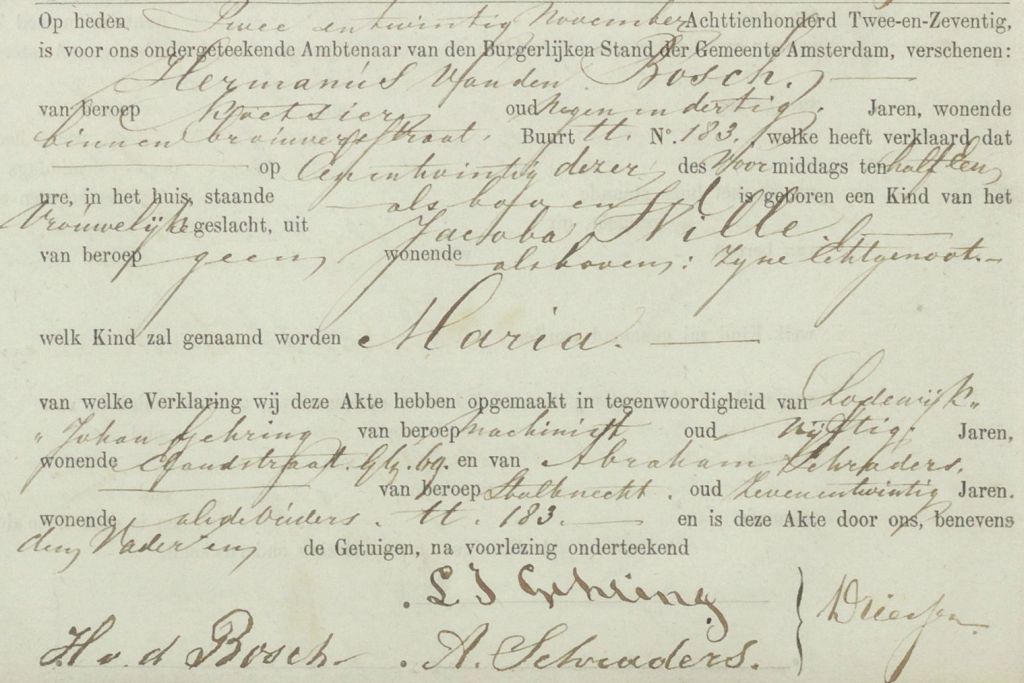 Op heden Twee entwintig November Achttienhonderd Twee-en-Zeventig,
is voor ons ondergeteekende Ambtenaar van den Burgerlijken Stand der Gemeente Amsterdam, verschenen:
Hermanus van den Bosch.
van beroep Koetsier oud Negen en dertig. Jaren, wonende
binnen brouwersstraat. Buurt tt. No. 183. welke heeft verklaard dat
op Eenentwintig dezer des Voor middags ten half tien
ure, in het huis, staande als boven is geboren een Kind van het
Vrouwelijk geslacht, uit Jacoba Wille.
van beroep geen wonende alsboven; Zyne Echtgenoot.
welk Kind zal genaamd worden Maria.
van welke Verklaring wij deze Akte hebben opgemaakt in tegenwoordigheid van Lodewijk
Johan Gehring van beroep Machinist oud vijftig. Jaren,
wonende 69. en van Abraham Schraders.
van beroep Stalknecht. oud Zevenentwintig Jaren.
wonende alsdeOuders. tt. 183. en is deze Akte door ons, benevens
den Vader en de Getuigen, na voorlezing onderteekend
L J Gehring
H v. d Bosch A. Schraders.